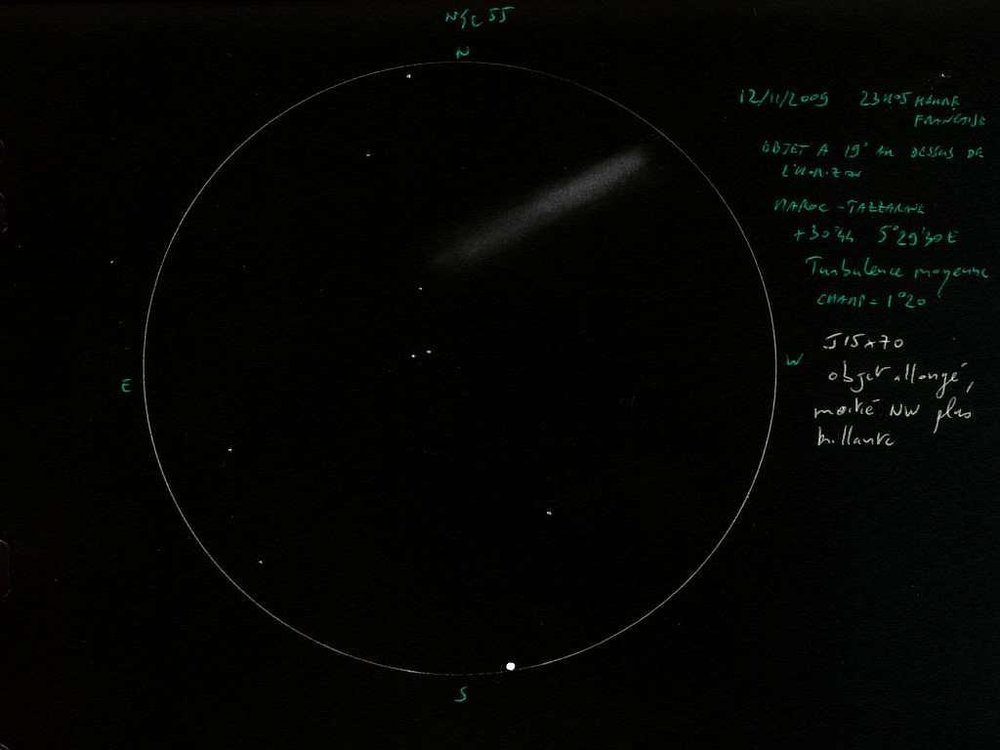 NGC 55
N
12/11/2009 23H05 HEURE
FRANÇAISE
OBJET A 19° AU DESSUS DE
L'HORIZON
MAROC - TAZZARINE
+30°44 5°29'30E
Turbulence moyenne
CHAMP = 1°20'
W
J15x70
E
objet allongé,
moitié NW plus
brillante
S